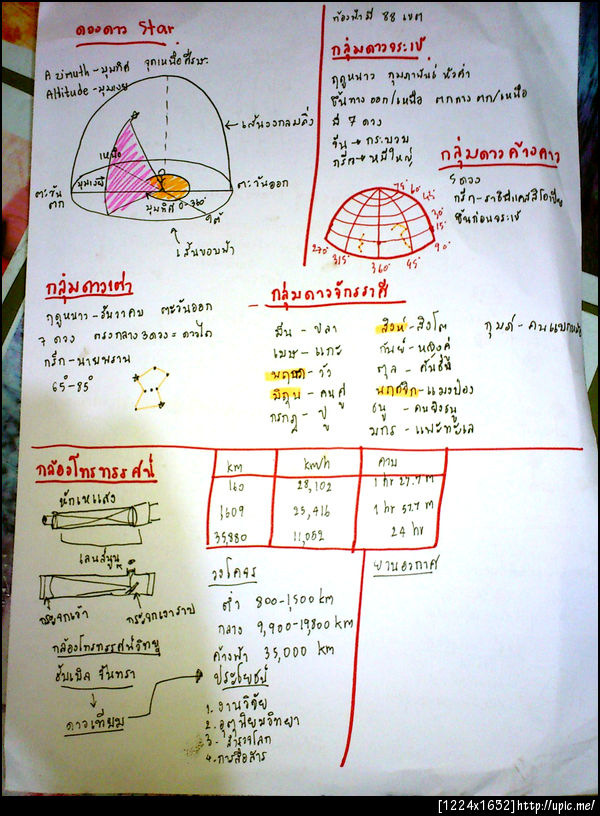 ดวงดาว Star
Azimuth - มุมทิศ
Altitude - มุมเงย
จุดเหนือศีรษะ
เส้นวงกลมดิ่ง
เหนือ
มุมเงย
ตะวันตก
ตะวันออก
มุมทิศ 0-360°
ใต้
เส้นขอบฟ้า
ท้องฟ้ามี 88 เขต
กลุ่มดาวจระเข้
ฤดูหนาว กุมภาพันธ์ หัวค่ำ
ขึ้นทางออก/เหนือ ตกทางตก/เหนือ
มี 7 ดวง
จีน → กระบวย
กรีก → หมีใหญ่
กลุ่มดาวค้างคาว
5 ดวง
กรีก - ราชินีแคสสิโอเปีย
ขึ้นก่อนจระเข้
75° 60° 45° 30° 15° 90°
270° 315° 360° 45°
กลุ่มดาวเต่า
ฤดูหนาว - ธันวาคม ตะวันออก
7 ดวง ตรงกลาง 3 ดวง = ดาวไถ
กรีก - นายพราน
65°-85°
- กลุ่มดาวจักรราศี
มีน - ปลา
เมษ - แกะ
พฤษภ - วัว
มิถุน - คนคู่
กรกฎ - ปู
สิงห์ - สิงโต
กันย์ - หญิงคู่
ตุล - คันชั่ง
พฤศจิก - แมงป่อง
ธนู - คนยิงธนู
มกร - แพะทะเล
กุมภ์ - คนแบกหม้อ
กล้องโทรทรรศน์
หักเหแสง
เลนส์นูน
กระจกเว้า
กระจกเงาราบ
กล้องโทรทรรศน์วิทยุ
ฮับเบิล จันทรา
ดาวเทียม
km km/h คาบ
160 28,102 1 hr 27.7 m
1,609 25,416 1 hr 57.7 m
35,880 11,052 24 hr
วงโคจร
ต่ำ 800-1,500 km
กลาง 9,900-19,800 km
ค้างฟ้า 35,000 km
ประโยชน์
1. งานวิจัย
2. อุตุนิยมวิทยา
3. สำรวจโลก
4. การสื่อสาร
ยานอวกาศ
[1224x1632]http://upic.me/